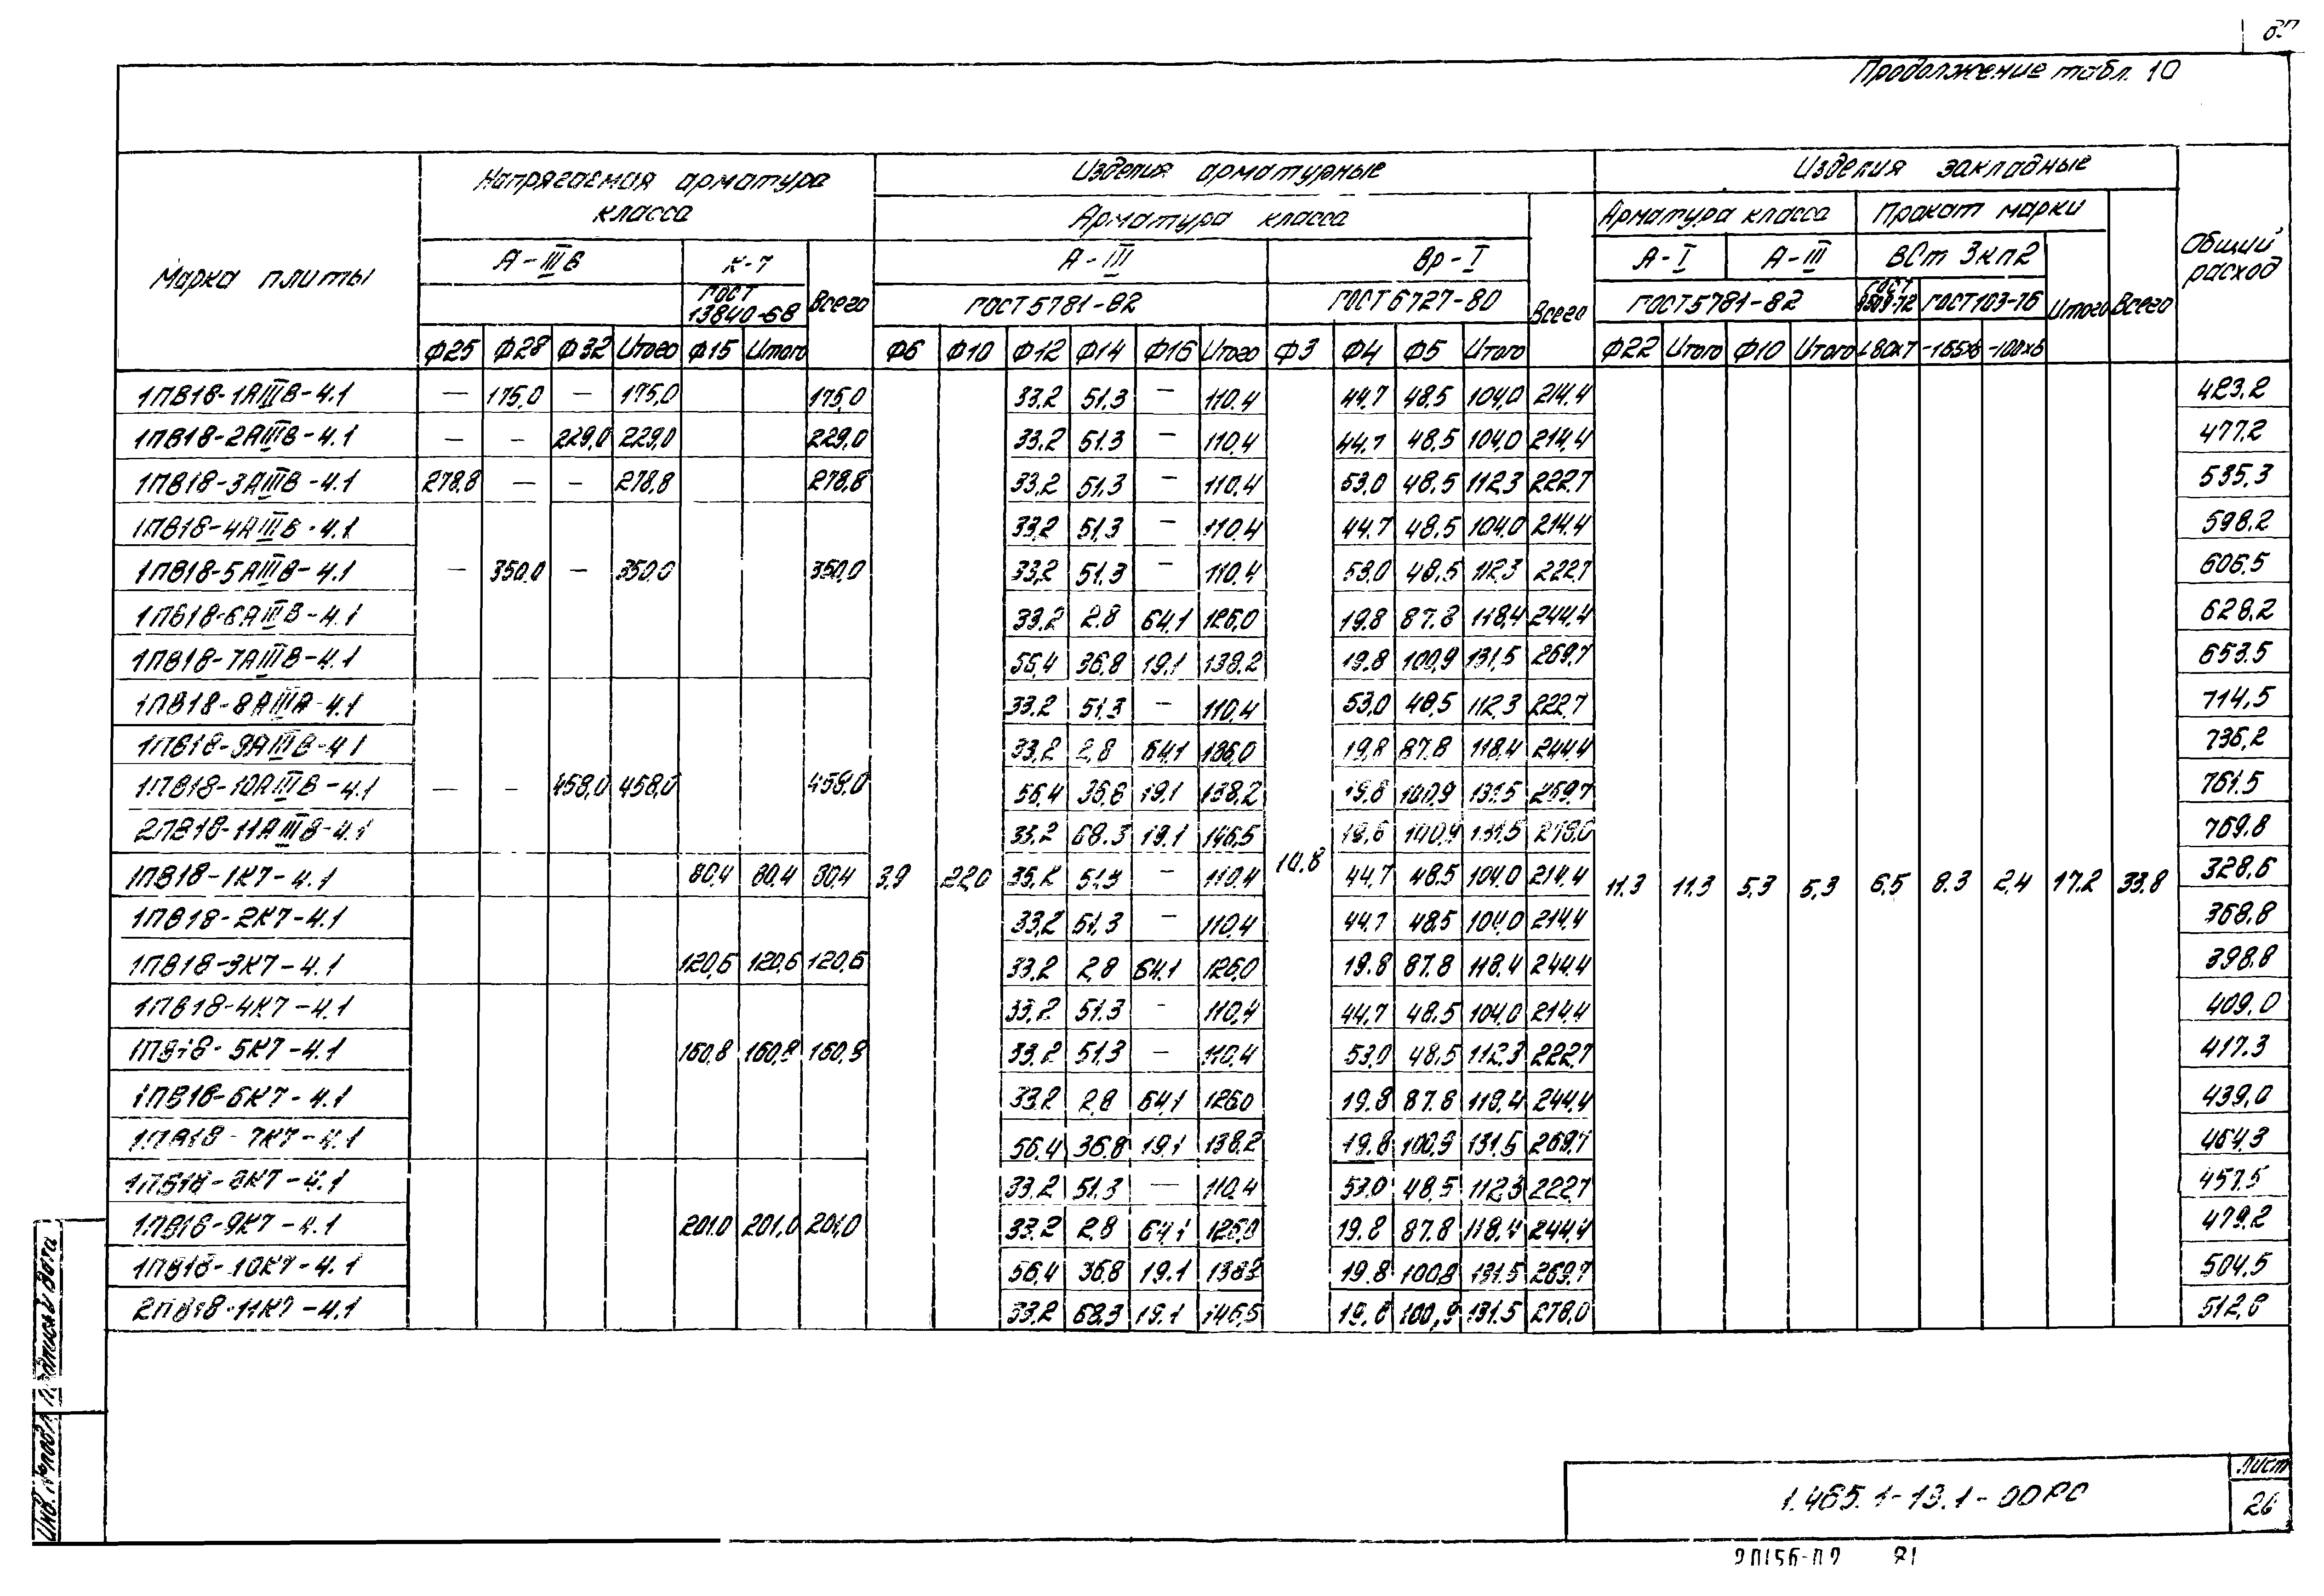 Продолжение табл. 10
Марка плиты
Напрягаемая арматура класса
Изделия арматурные
Изделия закладные
Общий расход
Арматура класса
Арматура класса
Прокат марки
А-IIIв К-7 Всего А-III Вр-I Всего А-I А-III ВСт 3кп2 Всего
ГОСТ 13840-68 ГОСТ 5781-82 ГОСТ 6727-80 ГОСТ 5781-82 ГОСТ 8509-72 ГОСТ 103-76 Итого
Ф25 Ф28 Ф32 Итого Ф15 Итого Ф6 Ф10 Ф12 Ф14 Ф16 Итого Ф3 Ф4 Ф5 Итого Ф22 Итого Ф10 Итого L80х7 -165х8 -100х6
1ПВ18-1АIIIВ-4.1 — 175,0 — 175,0 175,0 33,2 51.3 — 110.4 44,7 48,5 104,0 214.4 423,2
1ПВ18-2АIIIВ-4.1 — — 229,0 229,0 229,0 33,2 51.3 — 110,4 44,7 48,5 104,0 214,4 477,2
1ПВ18-3АIIIВ-4.1 278,8 — — 278,8 278,8 33,2 51,3 — 110,4 53,0 48,5 112,3 222,7 535,3
1ПВ18-4АIIIВ-4.1 33,2 51,3 — 110,4 44,7 48,5 104,0 214,4 598,2
1ПВ18-5АIIIВ-4.1 — 350,0 — 350,0 350,0 33,2 51.3 — 110,4 53,0 48,5 112,3 222,7 606,5
1ПВ18-6АIIIВ-4.1 33,2 2.8 64,1 126,0 19.8 87.8 118,4 244,4 628,2
1ПВ18-7АIIIВ-4.1 56,4 36,8 19,1 138,2 19.8 100,9 131,5 269,7 653.5
1ПВ18-8АIIIВ-4.1 33,2 51,3 — 110,4 53,0 48,5 112,3 222,7 714,5
1ПВ18-9АIIIВ-4.1 33,2 2,8 64,1 126,0 19,8 87.8 118,4 244,4 736,2
1ПВ18-10АIIIВ-4.1 — — 458,0 458,0 458,0 56,4 36,8 19,1 138,2 19,8 100,9 131,5 269,7 761.5
2ПВ18-11АIIIВ-4.1 33,2 68.3 19.1 146,5 19,8 100,9 131,5 278,0 769.8
1ПВ18-1К7-4.1 80,4 80,4 80,4 3,9 22,0 33,2 51,3 — 110,4 10,8 44,7 48,5 104,0 214,4 11.3 11,3 5,3 5,3 6,5 8.3 2,4 17.2 33,8 328,6
1ПВ18-2К7-4.1 33,2 51,3 — 110,4 44,7 48,5 104,0 214,4 368,8
1ПВ18-3К7-4.1 120,6 120,6 120,6 33,2 2,8 64,1 126,0 19.8 87,8 118,4 244,4 398,8
1ПВ18-4К7-4.1 33,2 51.3 — 110,4 44,7 48,5 104,0 214,4 409,0
1ПВ18-5К7-4.1 160,8 160,8 160,8 33,2 51.3 — 110,4 53,0 48,5 112,3 222,7 417.3
1ПВ18-6К7-4.1 33,2 2,8 64,1 126,0 19.8 87.8 118,4 244,4 439,0
1ПВ18-7К7-4.1 56,4 36,8 19,1 138,2 19.8 100,9 131,5 269,7 464,3
1ПВ18-8К7-4.1 33,2 51.3 — 110,4 53,0 48,5 112,3 222,7 457,5
1ПВ18-9К7-4.1 201,0 201,0 201,0 33,2 2,8 64,1 126,0 19.8 87.8 118,4 244,4 479,2
1ПВ18-10К7-4.1 56,4 36,8 19.1 138,2 19.8 100,9 131,5 269,7 504,5
2ПВ18-11К7-4.1 33,2 68,3 19,1 146,5 19,8 100,9 131.5 278,0 512,8
Инв. № подл. Подпись и дата
1.465.1-13.1-00РС
Лист
26
81